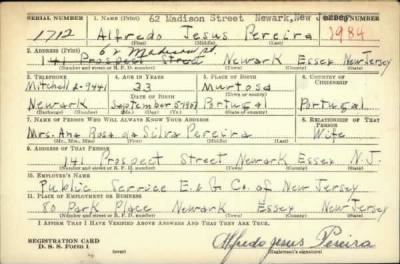 62 Madison Street Newark, New Jersey
SERIAL NUMBER 1. NAME (Print)
1712 Alfredo Jesus Pereira 1984
(First) (Middle) (Last)
2. ADDRESS (Print) 62 Madison St.
141 Prospect Street Newark Essex New Jersey
(Number and street or R. F. D. number) (Town) (County) (State)
3. TELEPHONE 4. AGE IN YEARS 5. PLACE OF BIRTH 6. COUNTRY OF CITIZENSHIP
Mitchell 2-9441 33 Murtosa
DATE OF BIRTH (Town or county)
Newark September 5 1907 Portugal Portugal
(Exchange) (Number) (Mo.) (Day) (Yr.) (State or country)
7. NAME OF PERSON WHO WILL ALWAYS KNOW YOUR ADDRESS 8. RELATIONSHIP OF THAT PERSON
Mrs. Ana Rosa da Silva Pereira Wife
(Mr., Mrs., Miss) (First) (Middle) (Last)
9. ADDRESS OF THAT PERSON
141 Prospect Street Newark Essex N.J.
(Number and street or R. F. D. number) (Town) (County) (State)
10. EMPLOYER'S NAME
Public Service E. & G Co. of New Jersey
11. PLACE OF EMPLOYMENT OR BUSINESS
80 Park Place Newark Essex New Jersey
(Number and street or R. F. D. number) (Town) (County) (State)
I AFFIRM THAT I HAVE VERIFIED ABOVE ANSWERS AND THAT THEY ARE TRUE.
REGISTRATION CARD
D. S. S. Form 1 (over) Alfredo Jesus Pereira
(Registrant's signature)